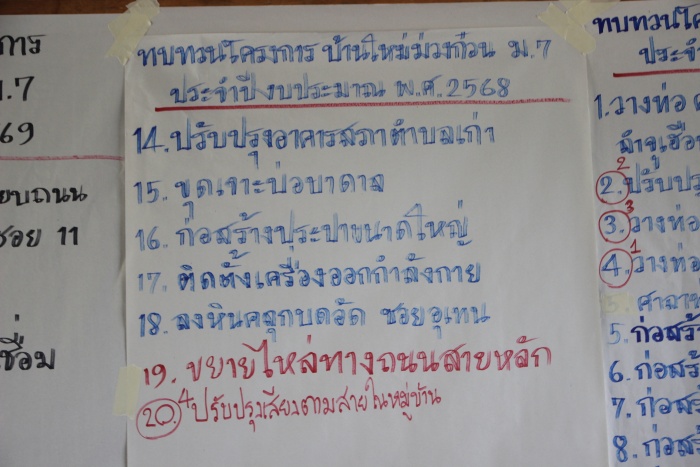 การ
ม.7
69
ยบถนน
ซอย 11
ชื่อม
ทบทวนโครงการ บ้านใหม่ม่วงก๋วน ม.7
ประจำปีงบประมาณ พ.ศ.2568
14. ปรับปรุงอาคารสภาตำบลเก่า
15. ขุดเจาะบ่อบาดาล
16. ก่อสร้างประปาขนาดใหญ่
17. ติดตั้งเครื่องออกกำลังกาย
18. ลงหินคลุกบดอัด ซอยอุเทน
19. ขยายไหล่ทางถนนสายหลัก
20. 4 ปรับปรุงเสียงตามสายในหมู่บ้าน
ทบทวนโค
ประจำ
1. วางท่อ
2. 2 ปรับปร
3. 3 วางท่อ
4. 1 วางท่อ
5. ก่อสร้
6. ก่อสร้
7. ก่อส
8. ก่อสร้